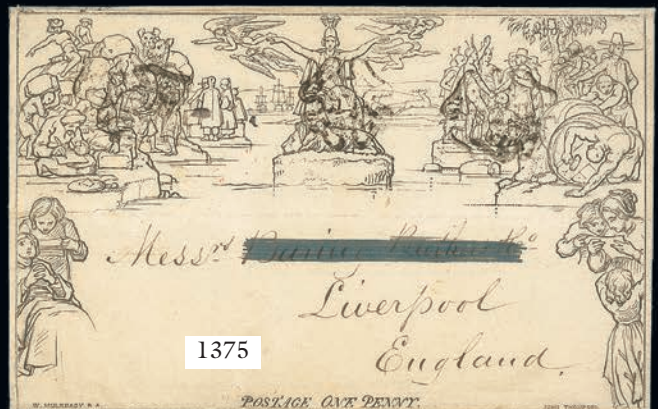 Messrs
Liverpool
England.
1375
W. MULREADY R A
POSTAGE ONE PENNY.
JOHN THOMPSON